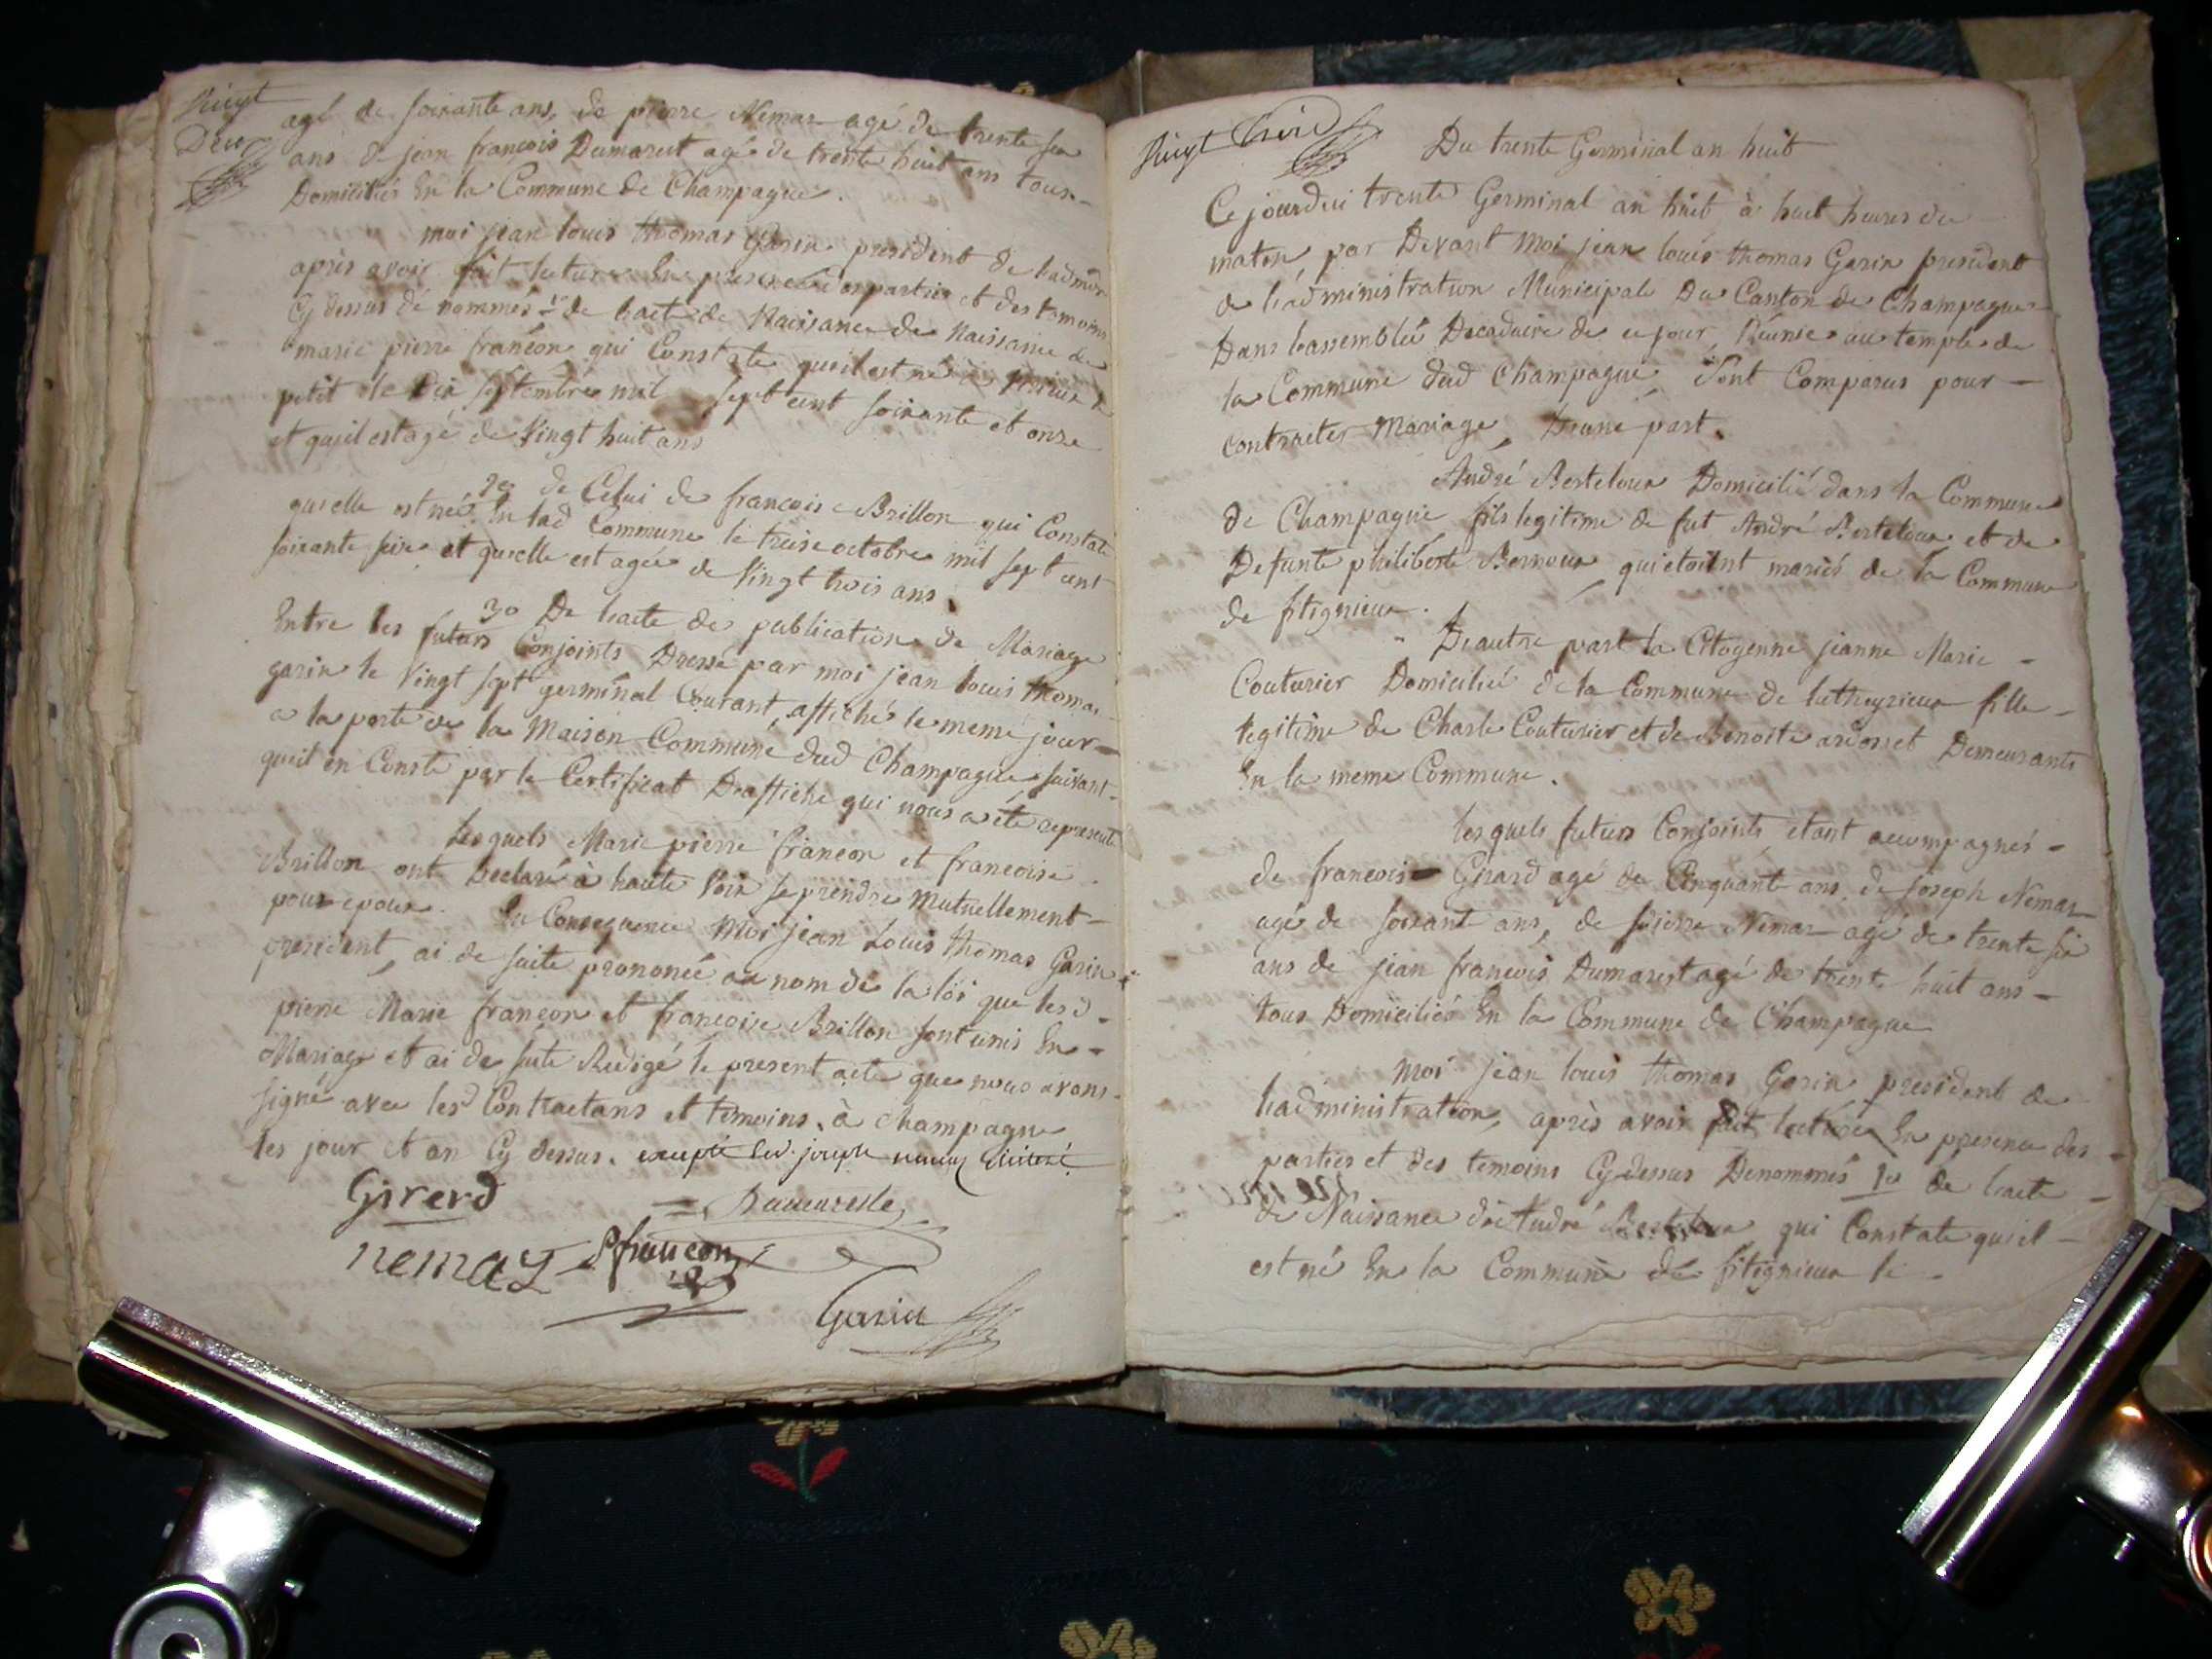 Vingt
Deux
agé de soixante ans, de pierre Nemaz agé de trente six
ans de jean françois Dumarest agé de trente huit ans tous
Domiciliés En la Commune de Champagne.
moi jean louis thomas Garin president de l'admon
après avoir fait lecture En presence des parties et des temoins
Cy dessus dé nommés 1o de l'acte de Naissance de Naissance de
marie pierre françon qui Constate qu'il est né à
petit le Dix septembre mil sept cent soixante et onze
et qu'il est agé de Vingt huit ans
2o de Celui de francoise Brillon qui Constate
qu'elle est née En lad Commune le treise octobre mil sept cent
soixante seize et qu'elle est agée de Vingt trois ans.
3o De l'acte de publication de Mariage
Entre les futurs Conjoints Dressé par moi jean louis thomas
garin le Vingt sept germinal Courant, affiché le meme jour
a la porte de la Maison Commune dud Champagne, suivant
qu'il en Conste par le Certificat D'affiche qui nous a été representé
Lesquels Marie pierre françon et francoise
Brillon ont Declaré à haute Voix se prendre Mutuellement
pour epoux. En Consequence Moi jean Louis thomas Garin
president, ai de suite prononcé au nom de la loi que lesd
pierre Marie françon et francoise Brillon sont unis En
Mariage et ai de suite Redigé le present acte que nous avons
signé avec lesd Contractans et temoins, à Champagne
les jour et an Cy dessus. excepté led. joseph nemaz
Girerd
nemaz P françon
Garin
Vingt trois
Du trente Germinal an huit
Ce jourdui trente Germinal an huit à huit heures du
matin, par Devant Moi jean louis thomas Garin president
de l'administration Municipale Du Canton de Champagne
Dans l'assemblée Decadaire de ce jour, Réunie au temple de
la Commune dud Champagne, Sont Comparus pour
contracter Mariage, D'une part.
André Berteloux Domicilié dans la Commune
de Champagne fils legitime de fut André Berteloux et de
Defunte philiberte Bernoux qui etoient mariés de la Commune
de fitignieux.
D'autre part la Citoyenne jeanne Marie
Couturier Domiciliée de la Commune de lutheyrieux fille
legitime de Charle Couturier et de Benoite Demeurants
En la meme Commune.
lesquels futurs Conjoints etant accompagnés
de francois Girard agé de Cinquante ans, de joseph Nemaz
agé de soixante ans, de pierre Nemaz agé de trente six
ans de jean francois Dumarest agé de trente huit ans
tous Domiciliés En la Commune de Champagne
Moi jean louis thomas Garin president de
l'administration, après avoir fait lecture En presence des
parties et des temoins Cy dessus Denommés 1o de l'acte
de Naissance de André Berteloux qui Constate qu'il
est né En la Commune de fitignieux le